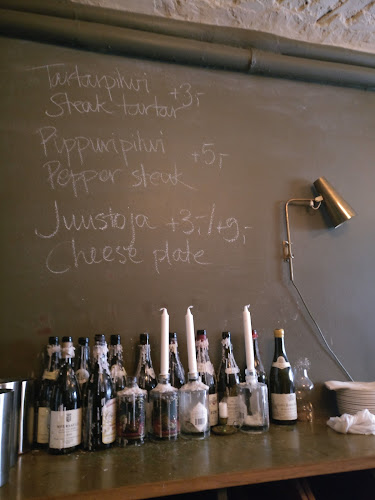 Tartarpihvi +3,-
Steak tartar
Pippuripihvi +5,-
Pepper steak
Juustoja +3,-/+9,-
Cheese plate